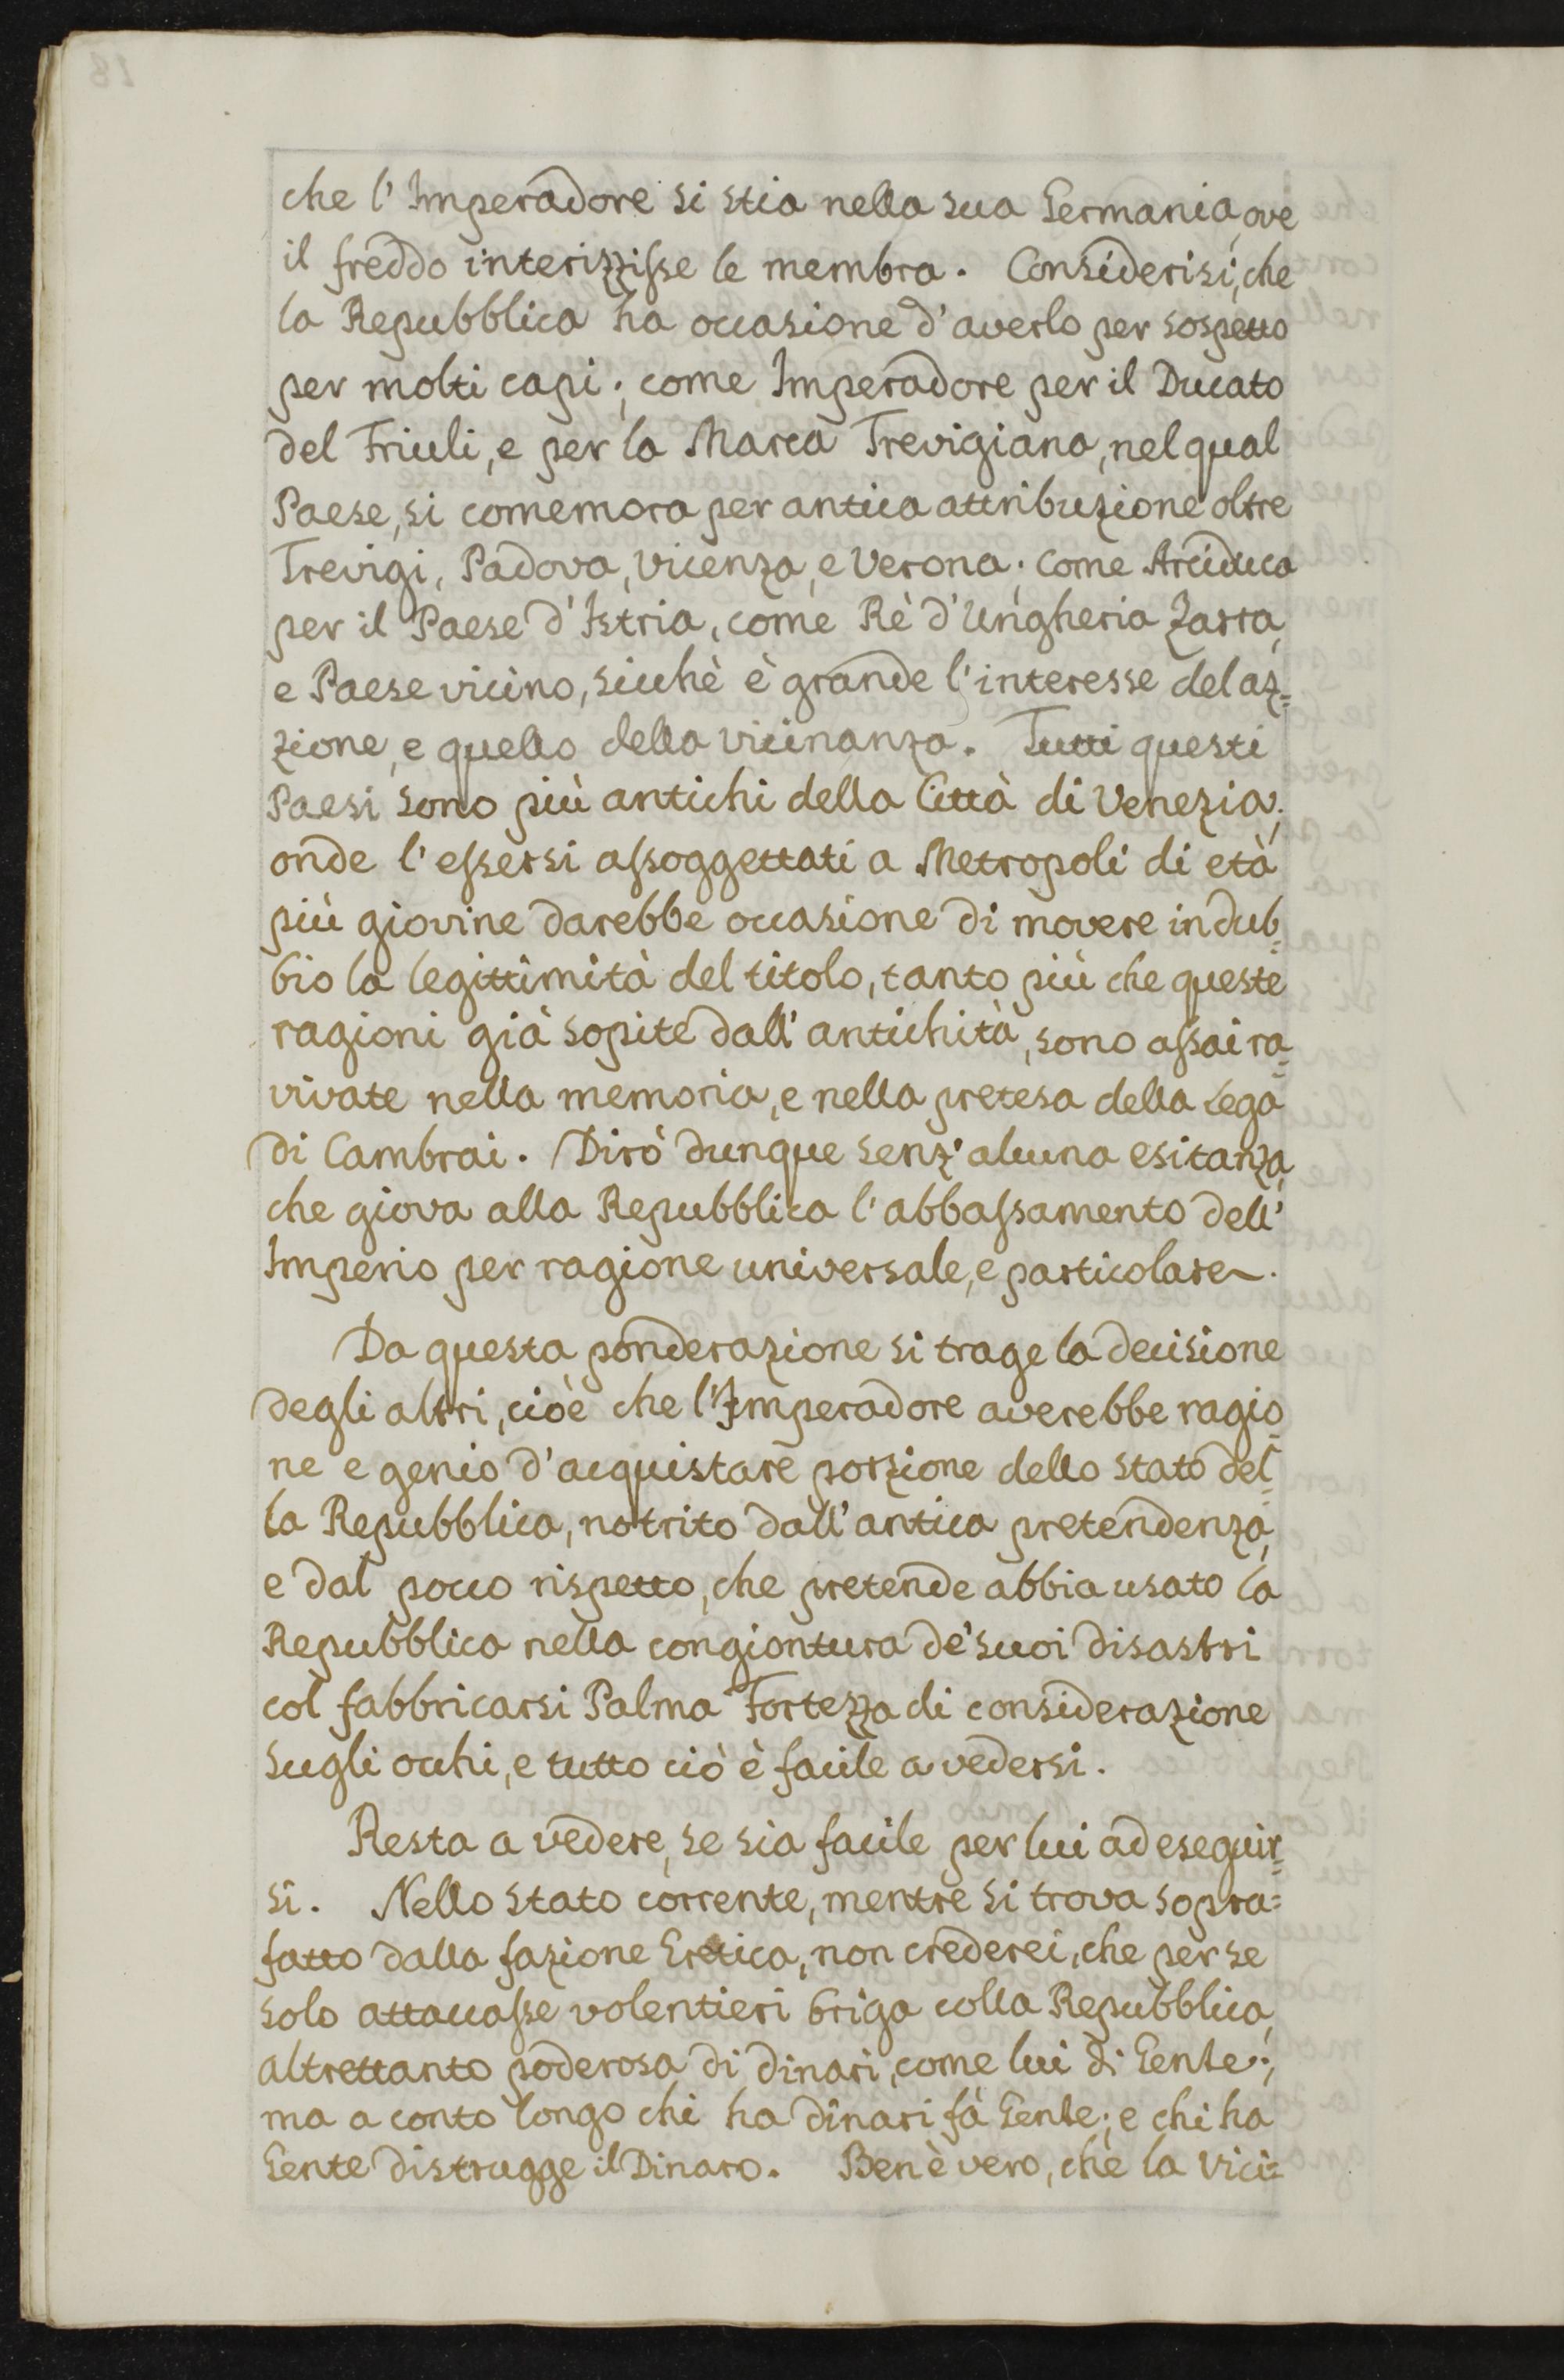 che l'Imperadore si stia nella sua Germania, ove
il freddo interizzisse le membra. Considerisi, che
la Repubblica ha occasione d'averlo per sospetto
per molti capi; come Imperadore per il Ducato
del Friuli, e per la Marca Trevigiana, nel qual
Paese, si comemora per antica attribuzione oltre
Trevigi, Padova, Vicenza, e Verona; come Arciduca
per il Paese d'Istria, come Rè d'Ungheria Zarra,
e Paese vicino, sicchè è grande l'interesse del az=
zione, e quello della vicinanza. Tutti questi
Paesi sono più antichi della Città di Venezia;
onde l'essersi assoggettati a Metropoli di età
più giovine darebbe occasione di movere in dub=
bio la legittimità del titolo, tanto più che queste
ragioni già sopite dall'antichità, sono assai ra=
vivate nella memoria, e nella pretesa della Lega
di Cambrai. Dirò dunque senz'alcuna esitanza,
che giova alla Repubblica l'abbassamento dell'
Imperio per ragione universale, e particolare.
Da questa ponderazione si trage la decisione
degli altri, cioè che l'Imperadore averebbe ragio=
ne e genio d'acquistare porzione dello stato del=
la Repubblica, notrito dall'antica pretendenza,
e dal pocco rispetto, che pretende abbia usato la
Repubblica nella congiontura de' suoi disastri
col fabbricarsi Palma Fortezza di considerazione
sugli occhi, e tutto ciò è facile a vedersi.
Resta a vedere, se sia facile per lui ad eseguir=
si. Nello stato corrente, mentre si trova sopra=
fatto dalla fazione Eretica, non crederei, che per se
solo attaccasse volentieri briga colla Repubblica,
altrettanto poderosa di dinari, come lui di Gente;
ma a conto longo chi ha dinari fà Gente; e chi ha
Gente distrugge il Dinaro. Ben è vero, che la Vici=